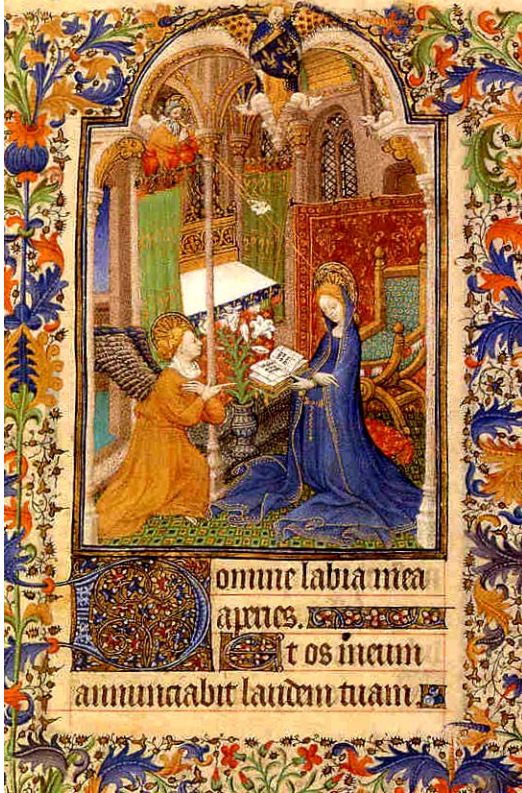 Domine labia mea
aperies.
Et os meum
annunciabit laudem tuam